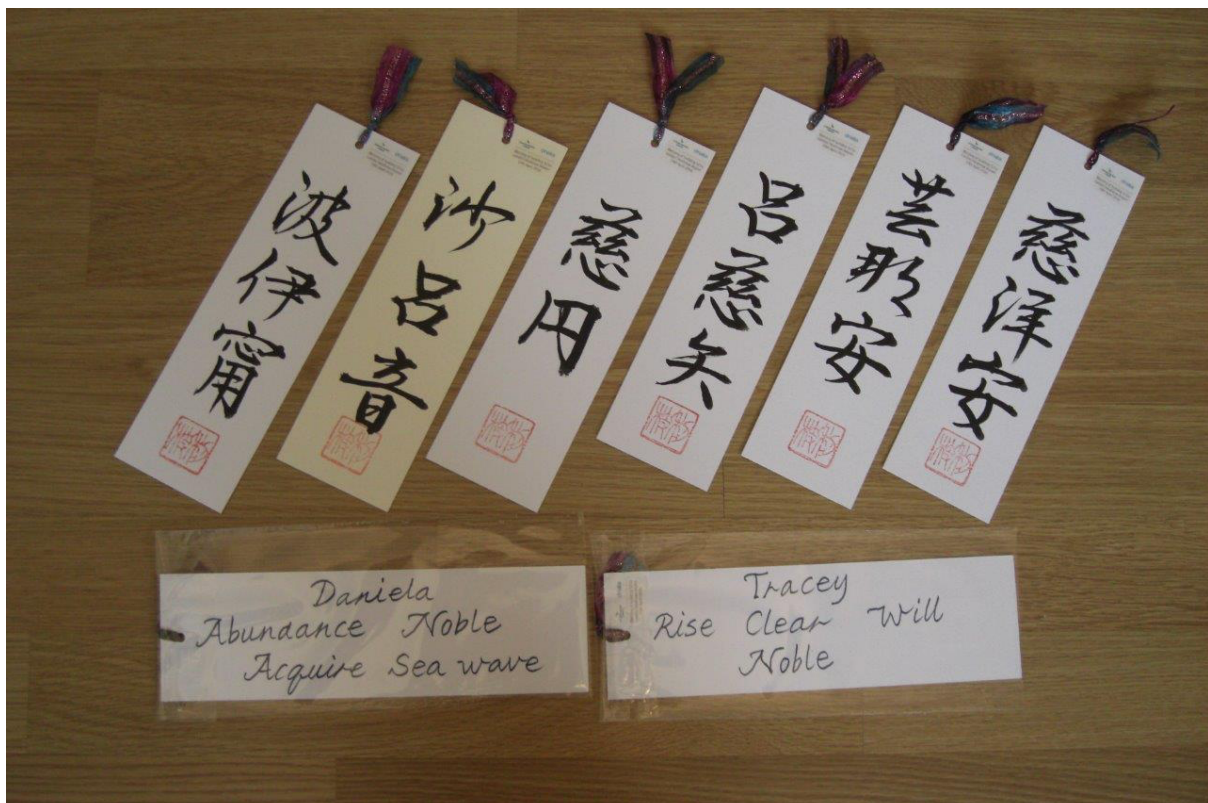 波伊甯
沙呂音
慈円
呂慈矢
芸那安
慈洋安
Daniela
Abundance Noble
Acquire Sea wave
Tracey
Rise Clear Will
Noble